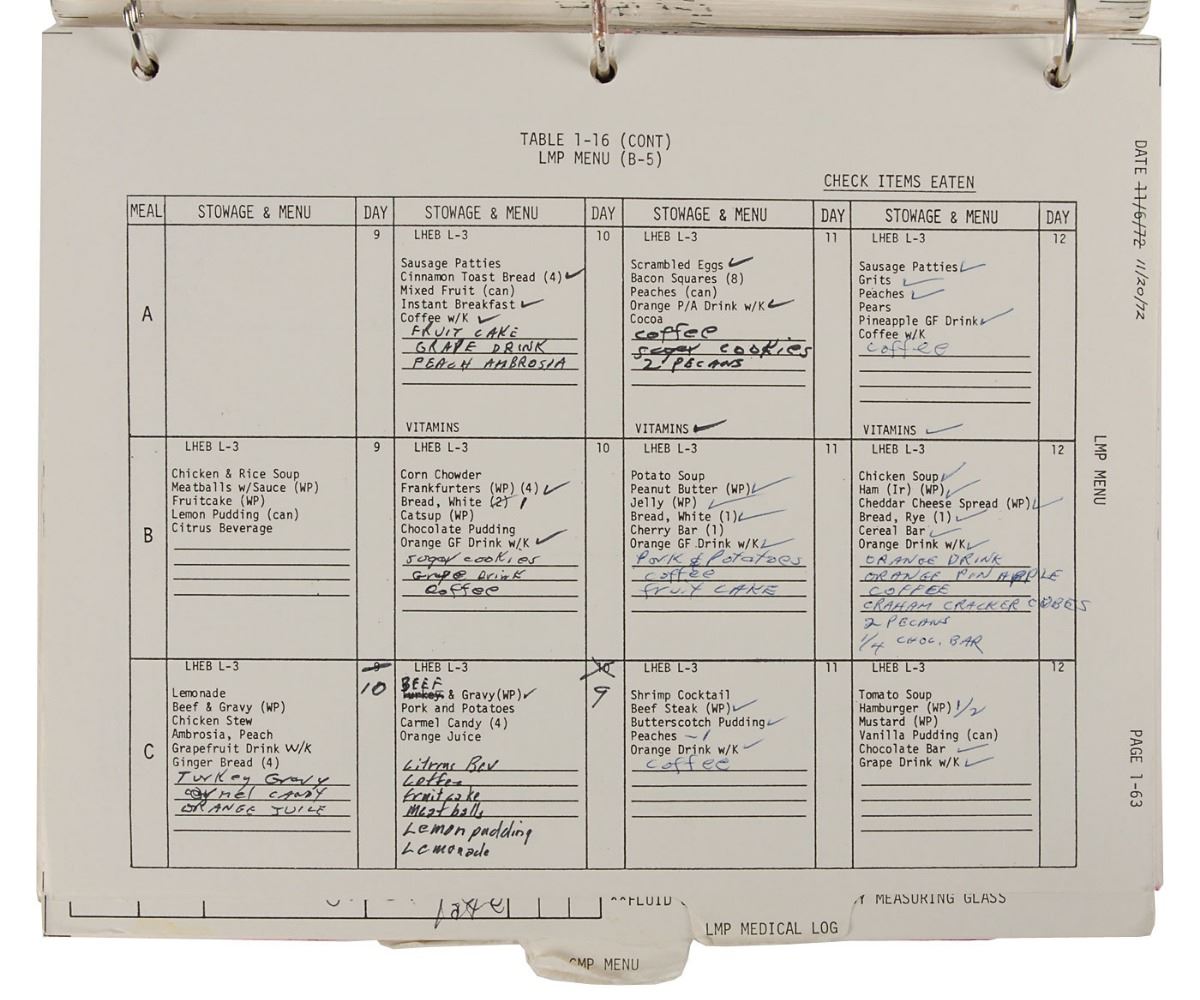 TABLE 1-16 (CONT)
LMP MENU (B-5)
CHECK ITEMS EATEN
MEAL STOWAGE & MENU DAY STOWAGE & MENU DAY STOWAGE & MENU DAY STOWAGE & MENU DAY
A
9
LHEB L-3 10
Sausage Patties
Cinnamon Toast Bread (4) ✓
Mixed Fruit (can)
Instant Breakfast ✓
Coffee w/K ✓
FRUIT CAKE
GRAPE DRINK
PEACH AMBROSIA
VITAMINS
LHEB L-3 11
Scrambled Eggs ✓
Bacon Squares (8)
Peaches (can)
Orange P/A Drink w/K ✓
Cocoa
coffee
sugar COOKIES
2 PECANS
VITAMINS ✓
LHEB L-3 12
Sausage Patties ✓
Grits ✓
Peaches ✓
Pears
Pineapple GF Drink ✓
Coffee w/K
coffee
VITAMINS ✓
B
LHEB L-3 9
Chicken & Rice Soup
Meatballs w/Sauce (WP)
Fruitcake (WP)
Lemon Pudding (can)
Citrus Beverage
LHEB L-3 10
Corn Chowder
Frankfurters (WP) (4) ✓
Bread, White (2) 1
Catsup (WP)
Chocolate Pudding
Orange GF Drink w/K ✓
sugar cookies
Grape Drink
Coffee
LHEB L-3 11
Potato Soup
Peanut Butter (WP) ✓
Jelly (WP) ✓
Bread, White (1) ✓
Cherry Bar (1)
Orange GF Drink w/K ✓
Pork & Potatoes
coffee
fruit CAKE
LHEB L-3 12
Chicken Soup ✓
Ham (Ir) (WP) ✓
Cheddar Cheese Spread (WP) ✓
Bread, Rye (1) ✓
Cereal Bar ✓
Orange Drink w/K ✓
ORANGE DRINK
ORANGE PINAPPLE
COFFEE
GRAHAM CRACKER CUBES
2 PECANS
1/4 CHOC. BAR
C
LHEB L-3 9
10
Lemonade
Beef & Gravy (WP)
Chicken Stew
Ambrosia, Peach
Grapefruit Drink W/K
Ginger Bread (4)
Turkey Gravy
Carmel CANDY
ORANGE JUICE
LHEB L-3 10
9
BEEF
Turkey & Gravy(WP) ✓
Pork and Potatoes
Carmel Candy (4)
Orange Juice
Citrus Bev
Coffee
fruitcake
Meat balls
Lemon pudding
Lemonade
LHEB L-3 11
Shrimp Cocktail
Beef Steak (WP) ✓
Butterscotch Pudding ✓
Peaches – 1
Orange Drink w/K ✓
coffee
LHEB L-3 12
Tomato Soup
Hamburger (WP) 1/2 ✓
Mustard (WP)
Vanilla Pudding (can)
Chocolate Bar ✓
Grape Drink w/K ✓
DATE 11/6/72 11/20/72
LMP MENU
PAGE 1-63
**FLUID
Y MEASURING GLASS
LMP MEDICAL LOG
CMP MENU